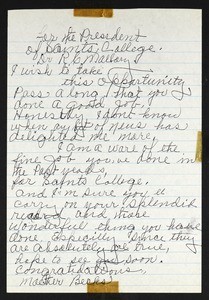 To the President
Of Saints College.
Dr R.C. Mallory,
I wish to take
this opportunity
Pass along, that you
done a good job,
Honestly I dont know
when any of News has
delighted me more,
I am aware of the
fine job you've done in
the Past years,
for Saints College,
and I'm sure you'll
carry on your splendid
record, and those
wonderful thing you have
done. Especially Since they
are absolutely true,
hope to see you soon.
Congradulations,